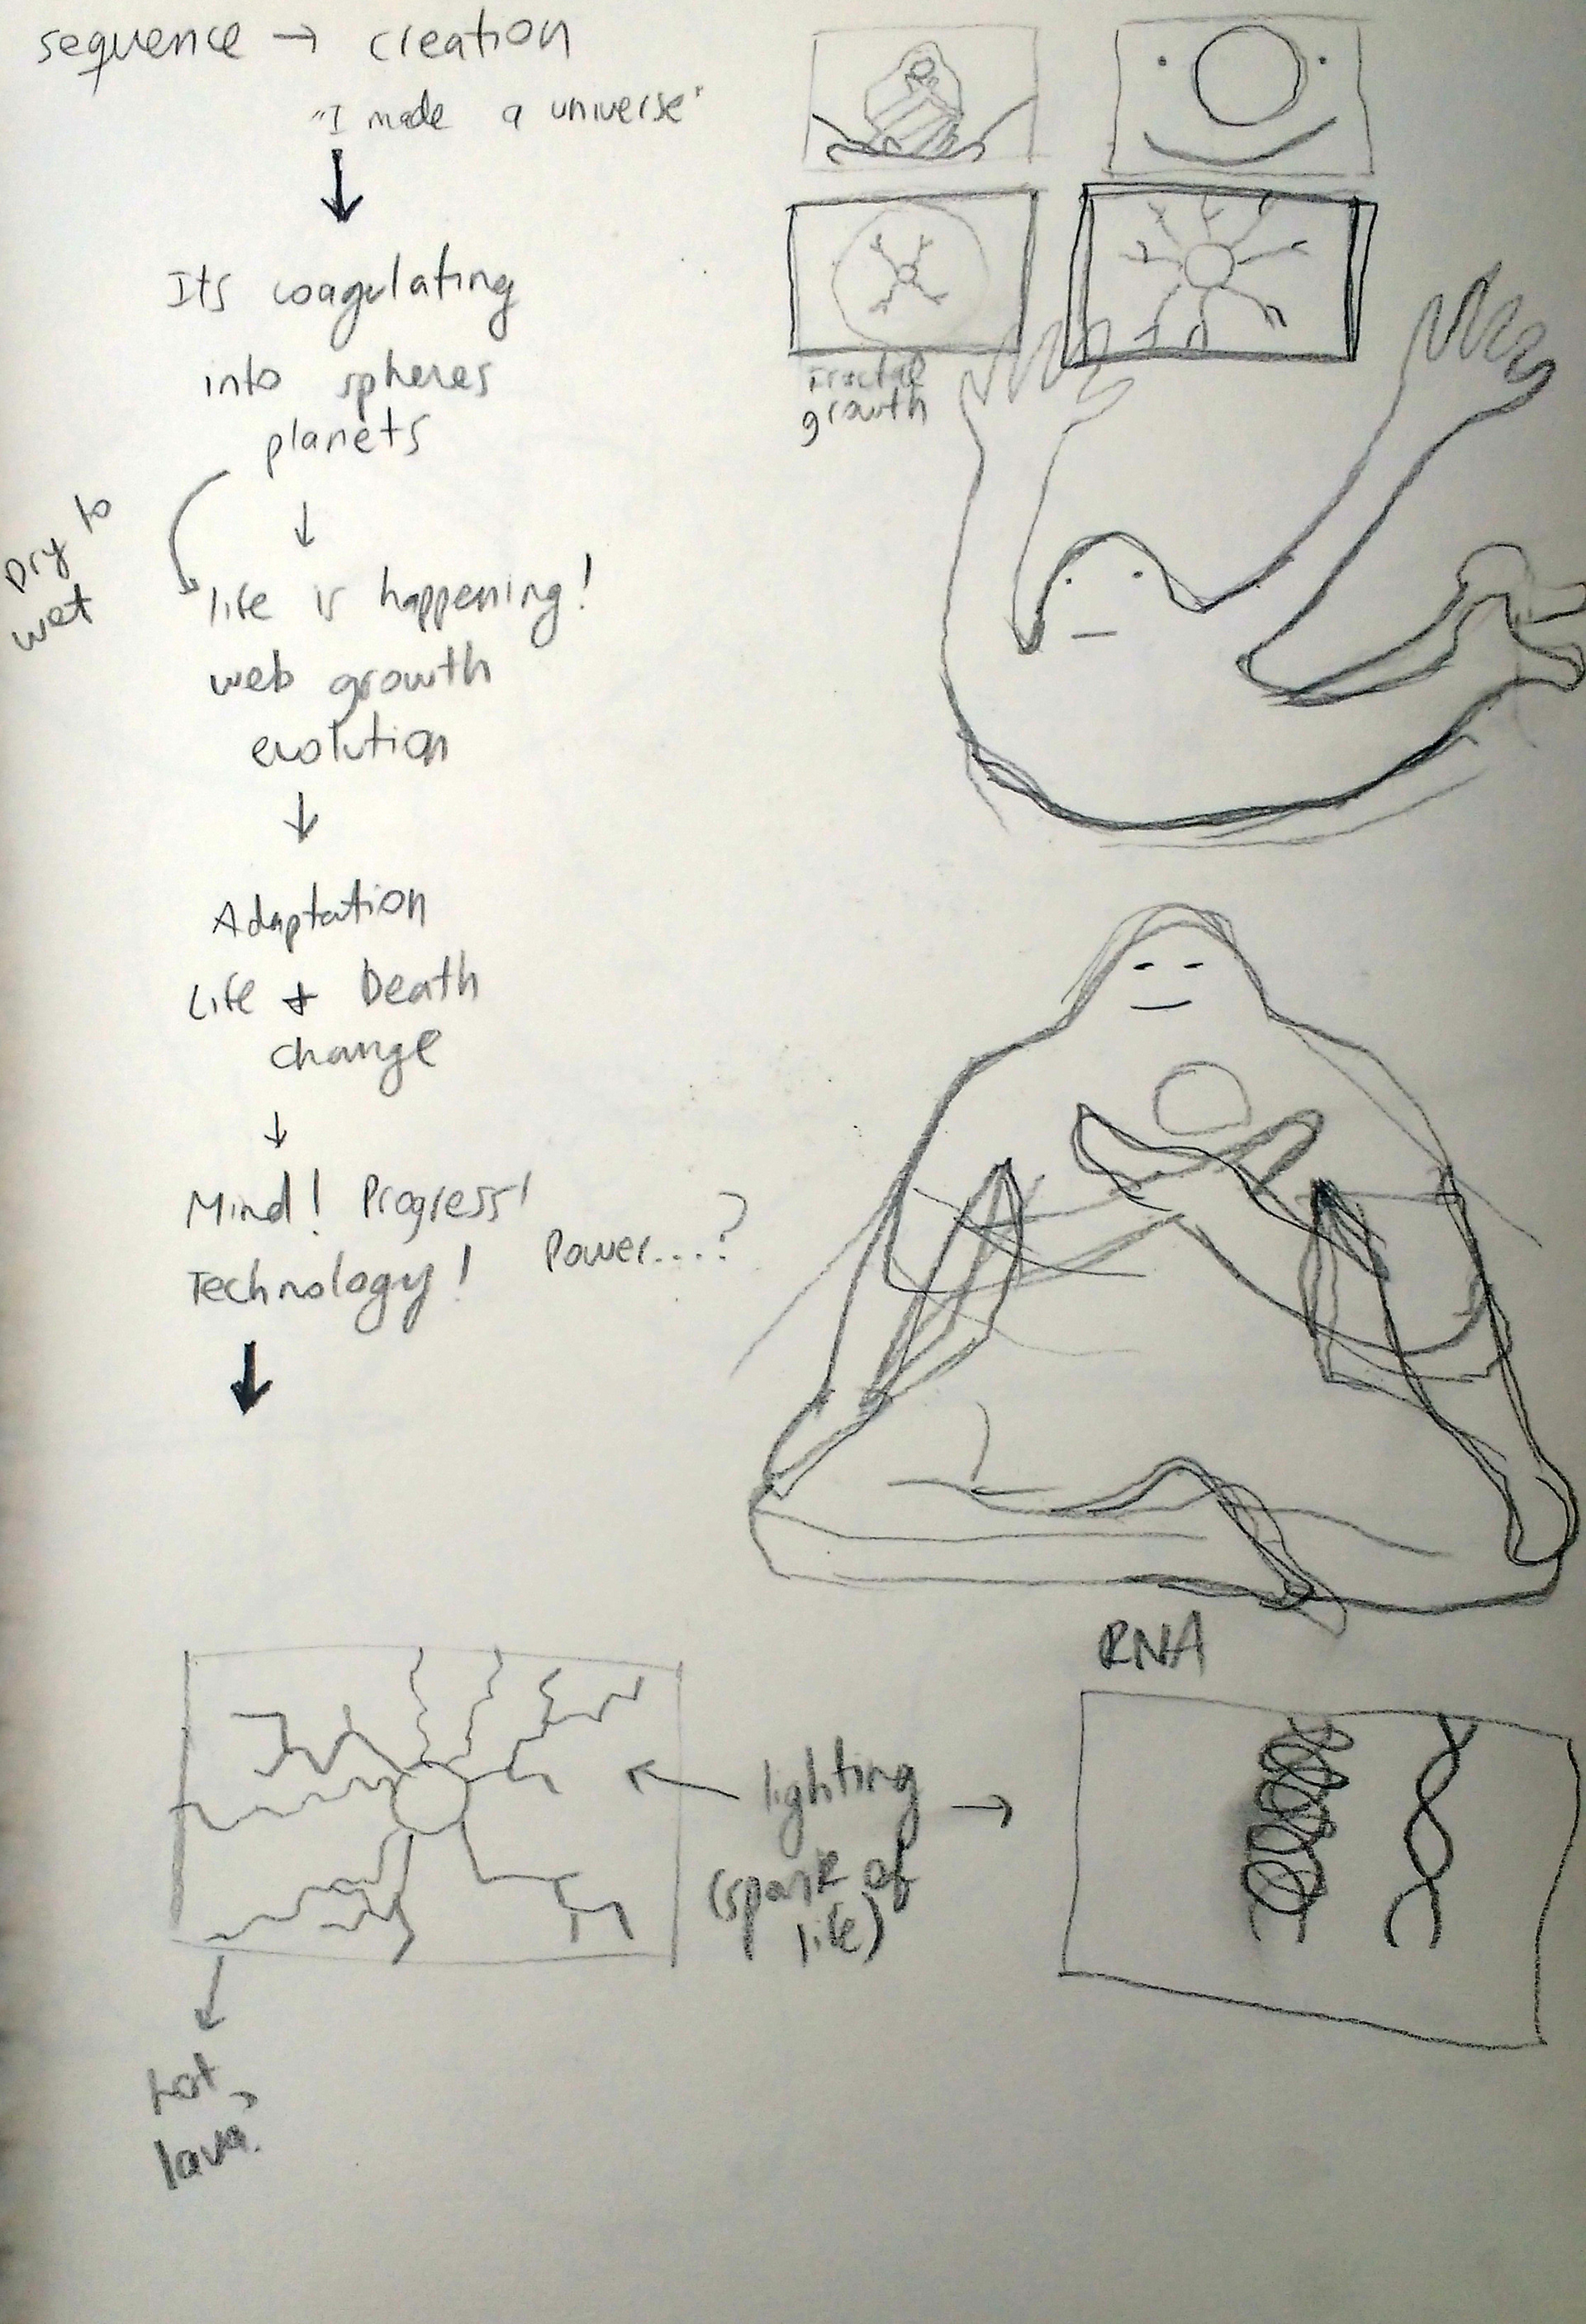 sequence → creation
"I made a universe"
Its coagulating
into spheres
planets
Dry to
wet
life is happening!
web growth
evolution
Adaptation
Life + Death
change
Mind! Progress!
Technology! Power...?
Fractal
growth
RNA
lighting
(spark of
life)
hot
lava?